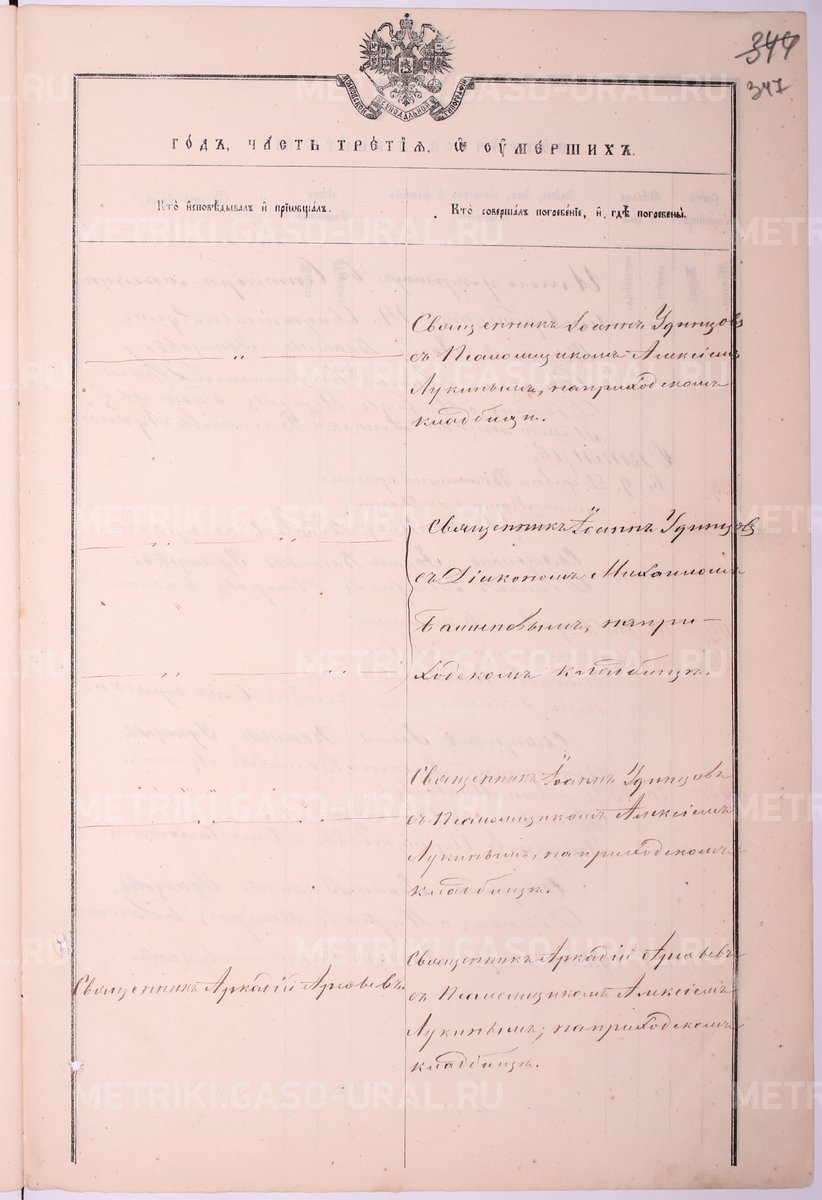 344
347
МОСКОВСКОЙ СѴНОДАЛЬНОЙ ТИПОГРАФІИ
ГО́ДЪ, ЧА́СТЬ ТРЕ́ТІѦ, Ѿ ОУ҆МЕ́РШИХЪ.
Кто̀ и҆сповѣ́дывалъ и҆ прїѡбща́лъ.
Кто̀ соверша́лъ погребе́нїе, и҆ гдѣ̀ погребены̀.
Священникъ Іоаннъ Удинцовъ
съ Псаломщикомъ Алексіемъ
Лукинымъ, на приходскомъ
кладбищѣ.
Священникъ Іоаннъ Удинцовъ
съ Діакономъ Михаиломъ
на при-
ходскомъ кладбищѣ.
Священникъ Іоаннъ Удинцовъ
съ Псаломщикомъ Алексіемъ
Лукинымъ, на приходскомъ
кладбищѣ.
Священникъ Аркадій
Священникъ Аркадій
съ Псаломщикомъ Алексіемъ
Лукинымъ, на приходскомъ
кладбищѣ.
METRIKI.GASO-URAL.RU